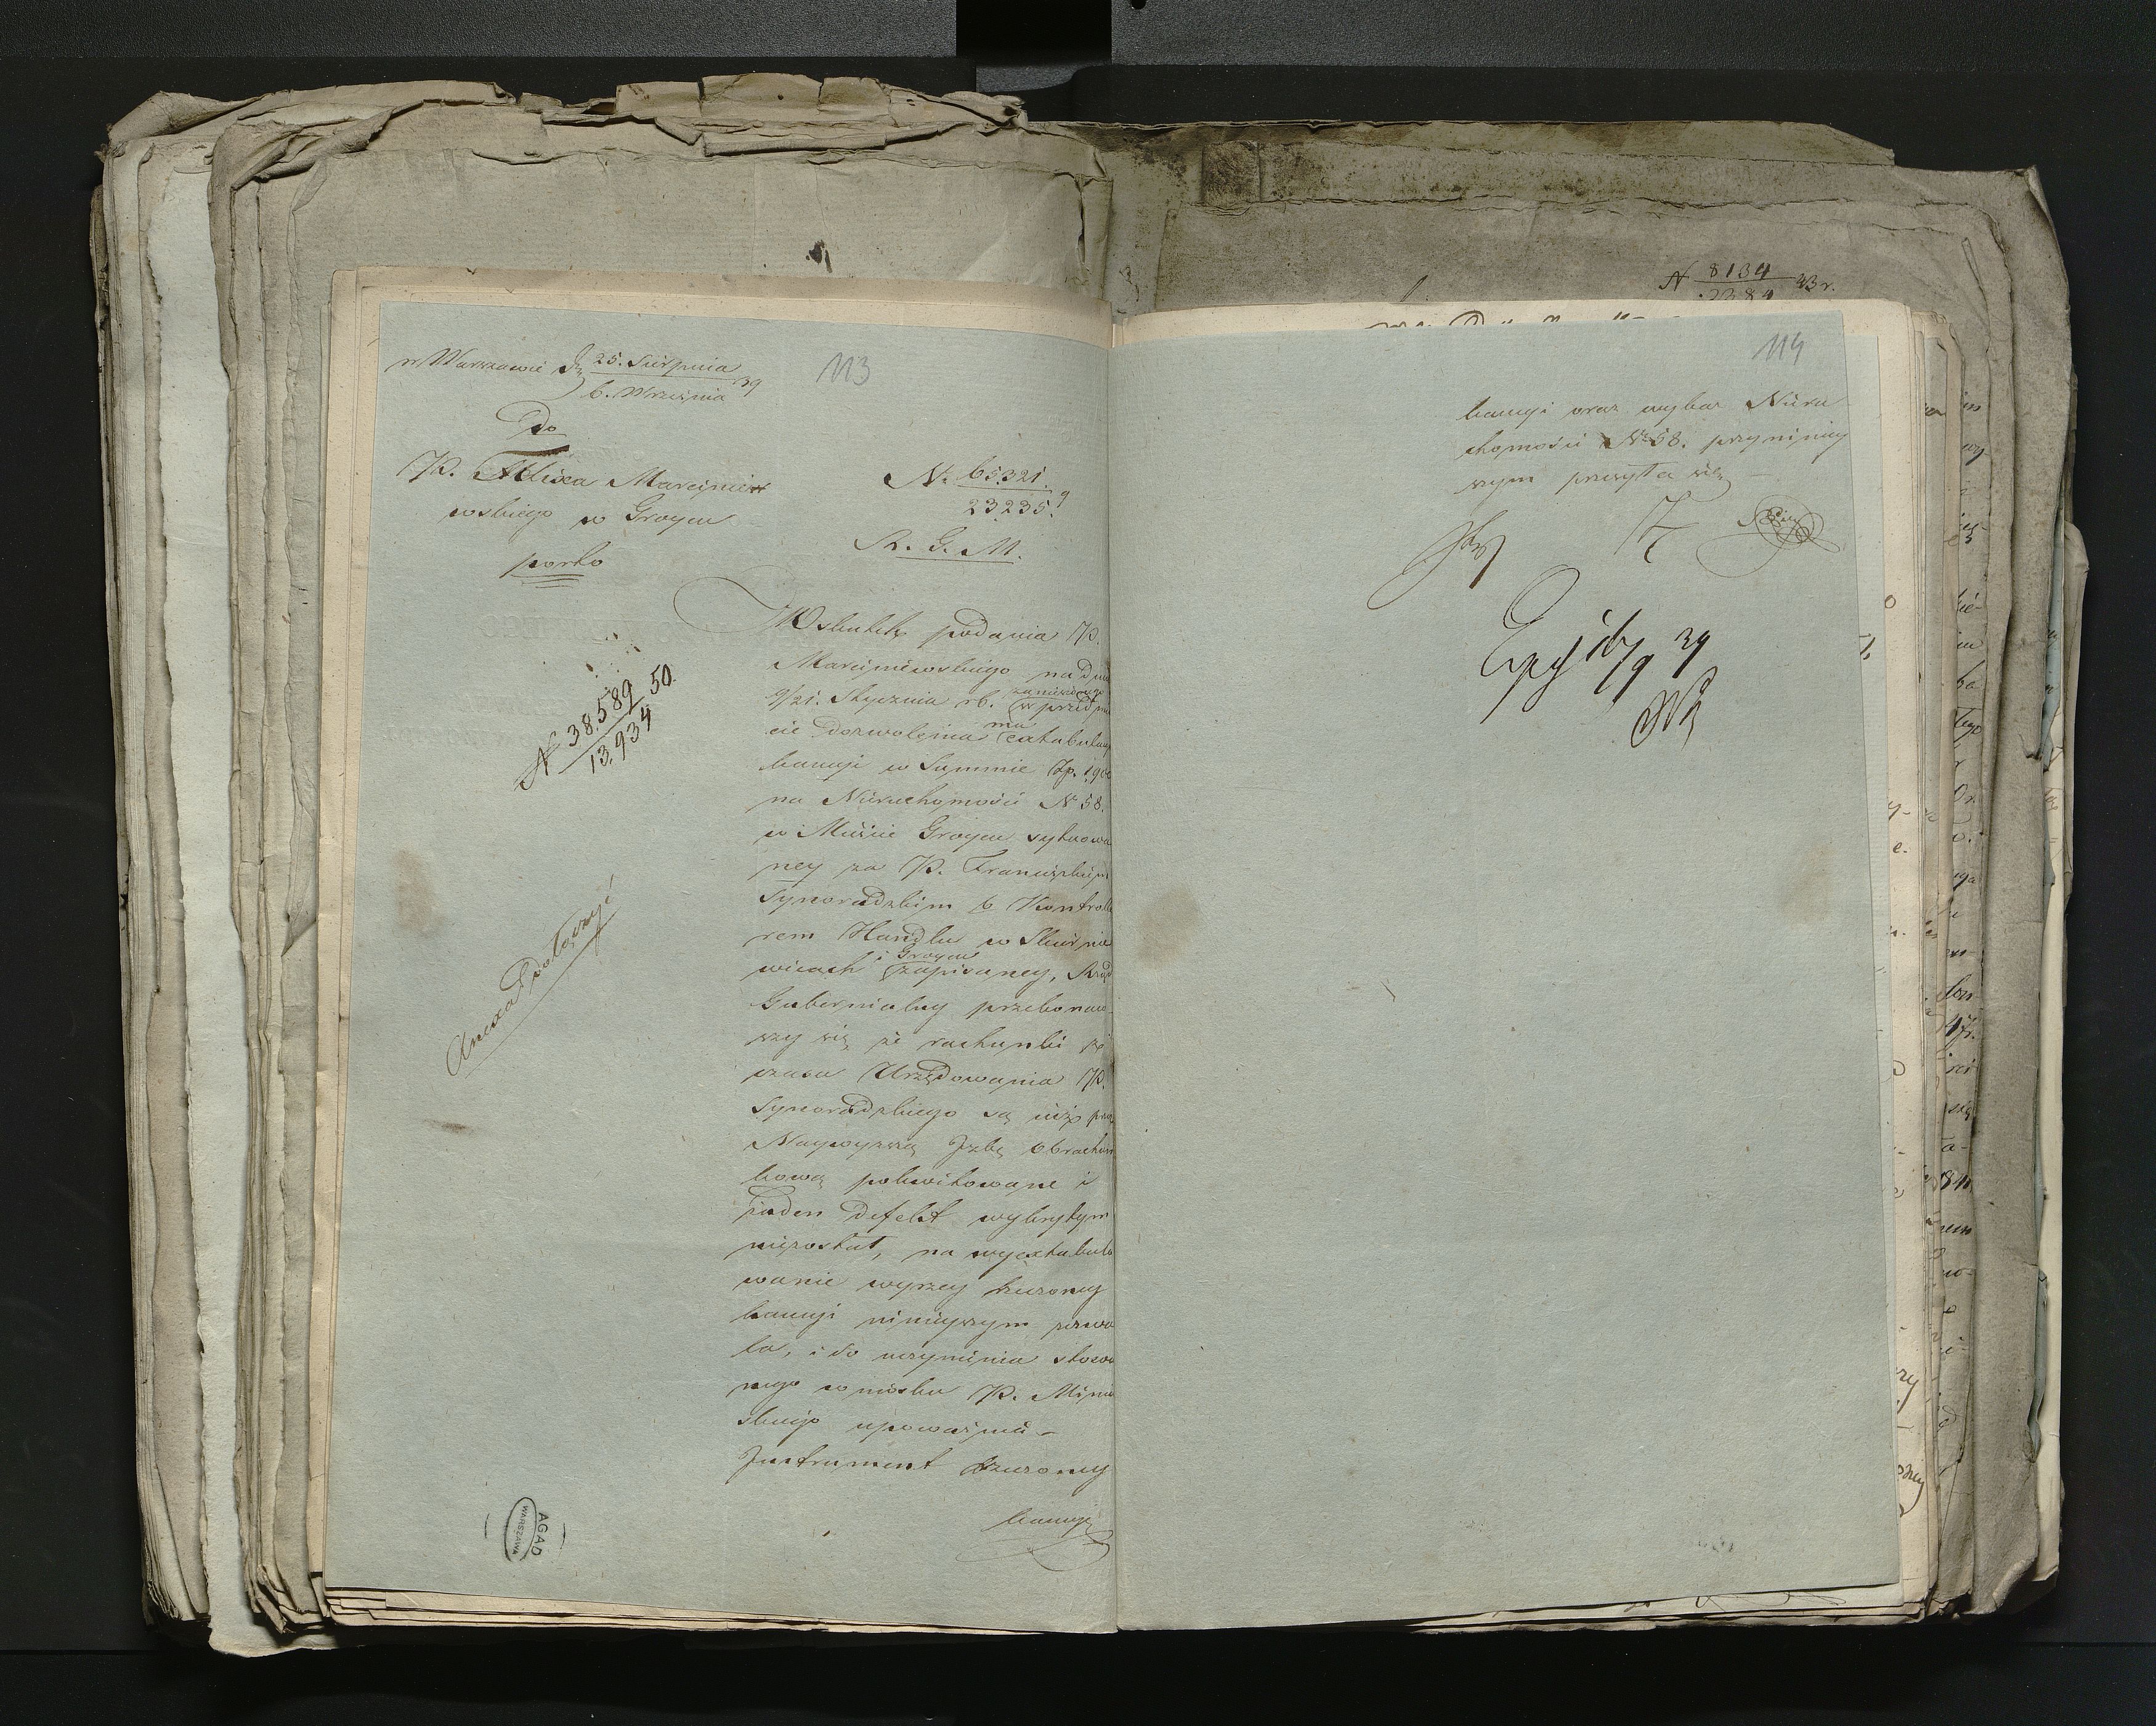 w Warszawie d. 25. Sierpnia
6. Września 39
113
Do
JP. Felixa Marcinie
wskiego w Groycu
porto
N. 65.321.
23235. 9
R. G. M.
N 38.589 50.
13.934
Annexa dołączyć
Wskutek podania JP.
Marciniewskiego na dniu
9/21. Stycznia rb. zaniesionego w przedmio
cie dozwolenia na extabulacyą
kaucyi w Summie Zp. 1,900
na Nieruchomości N 58.
w Mieście Groycu sytuowa
ney za JP. Franciszkiem
Synoradzkim b Kontrolle
rem Handlu w Skiernie
wicach i Groycu zapisaney, Rząd
Gubernialny przekonaw
szy się że rachunki ze
czasu Urzędowania JP.
Synoradzkiego są już przez
Naywyższą Izbę Obrachun
kową pokwitowane i
żaden defekt wykrytym
niezostał, na wyextabulo
wanie wyrzey rzeczoney
kaucyi ninieyszym zezwa
la, i do uczynienia stosow
nego wniosku JP.
skiego upoważnia –
Instrument rzeczoney
kaucyi
AGAD
WARSZAWA
N 8134
2384 43 r.
114
kaucyi oraz wykaz Nieru
chomości N 58. przy niniey
szym przesyła się –
Exp 16/9 39